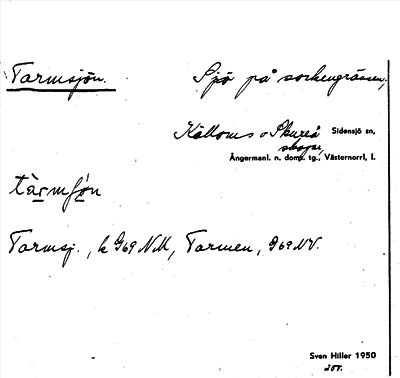 Tarmsjön. Sjö på sockengränsen,
Källoms o Skureå Sidensjö sn,
skogar,
Ångermanl. n. doms. tg., Västernorrl. l.
tàrmʃo̱n
Tarmsj., k G69 NM, Tarmen, G69 NV.
Sven Hiller 1950